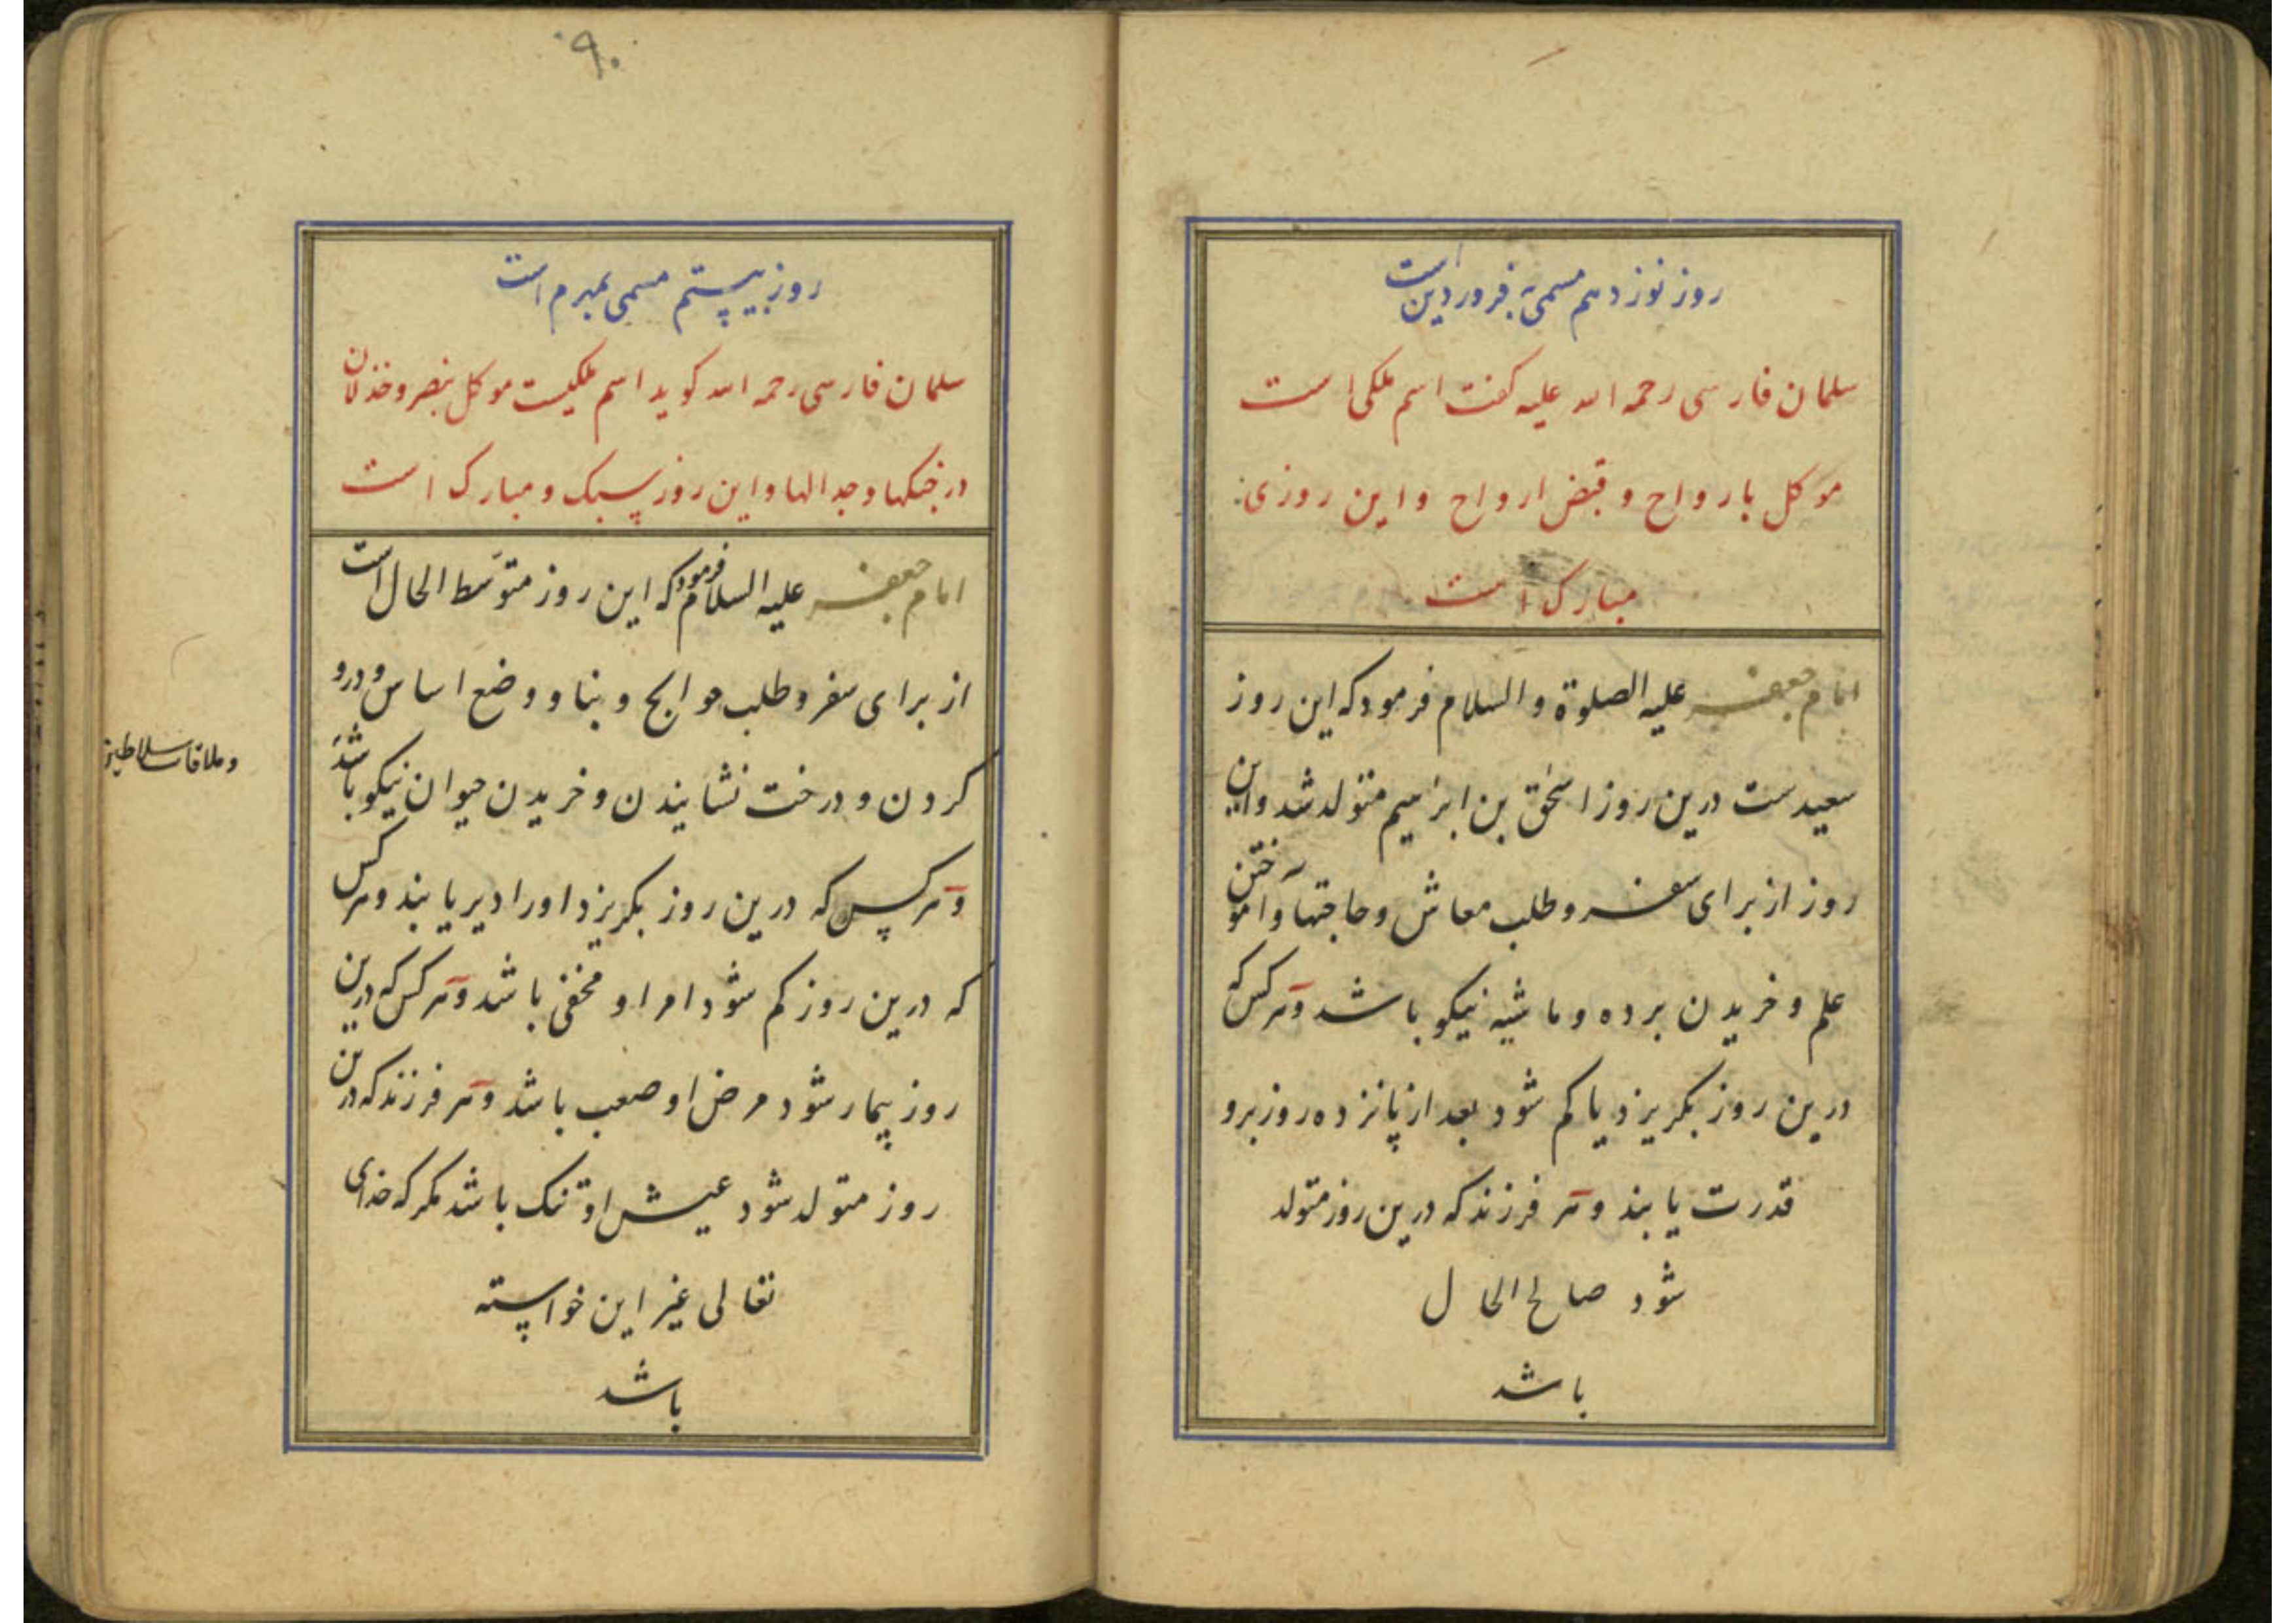 روز نوزدهم مسمی به فروردین است
سلمان فارسی رحمه الله علیه کفت اسم ملکی است
موکل بارواح و قبض ارواح واین روزی
مبارک است
امام جعفر علیه الصلوة والسلام فرمود که این روز
سعیدست درین روز اسحٰق بن ابرهیم متولد شد واین
روز از برای سفر وطلب معاش وحاجتها وآموختن
علم وخریدن برده وماشیه نیکو باشد وهر کس که
درین روز بکریزد یا کم شود بعد از پانزده روز برو
قدرت یابند وهر فرزند که درین روز متولد
شود صالح الحال
باشد
۹۰
روز بیستم مسمی ببهرم است
سلمان فارسی رحمه الله کوید اسم ملکیست موکل بنصر وخذلان
در جنکها وجدالها واین روز سبک ومبارک است
امام جعفر علیه السلام فرمود که این روز متوسط الحال است
از برای سفر وطلب حوایج وبنا ووضع اساس ودرو
کردن ودرخت نشایندن وخریدن حیوان نیکو باشد
وهر کس که درین روز بکریزد اورا دیر یابند وهر کس
که درین روز کم شود امر او مخفی باشد وهر کس که درین
روز بیمار شود مرض او صعب باشد وهر فرزند که درین
روز متولد شود عیش او تنک باشد مکر که خدای
تعالی غیر این خواسته
باشد
وملاقات سلاطین